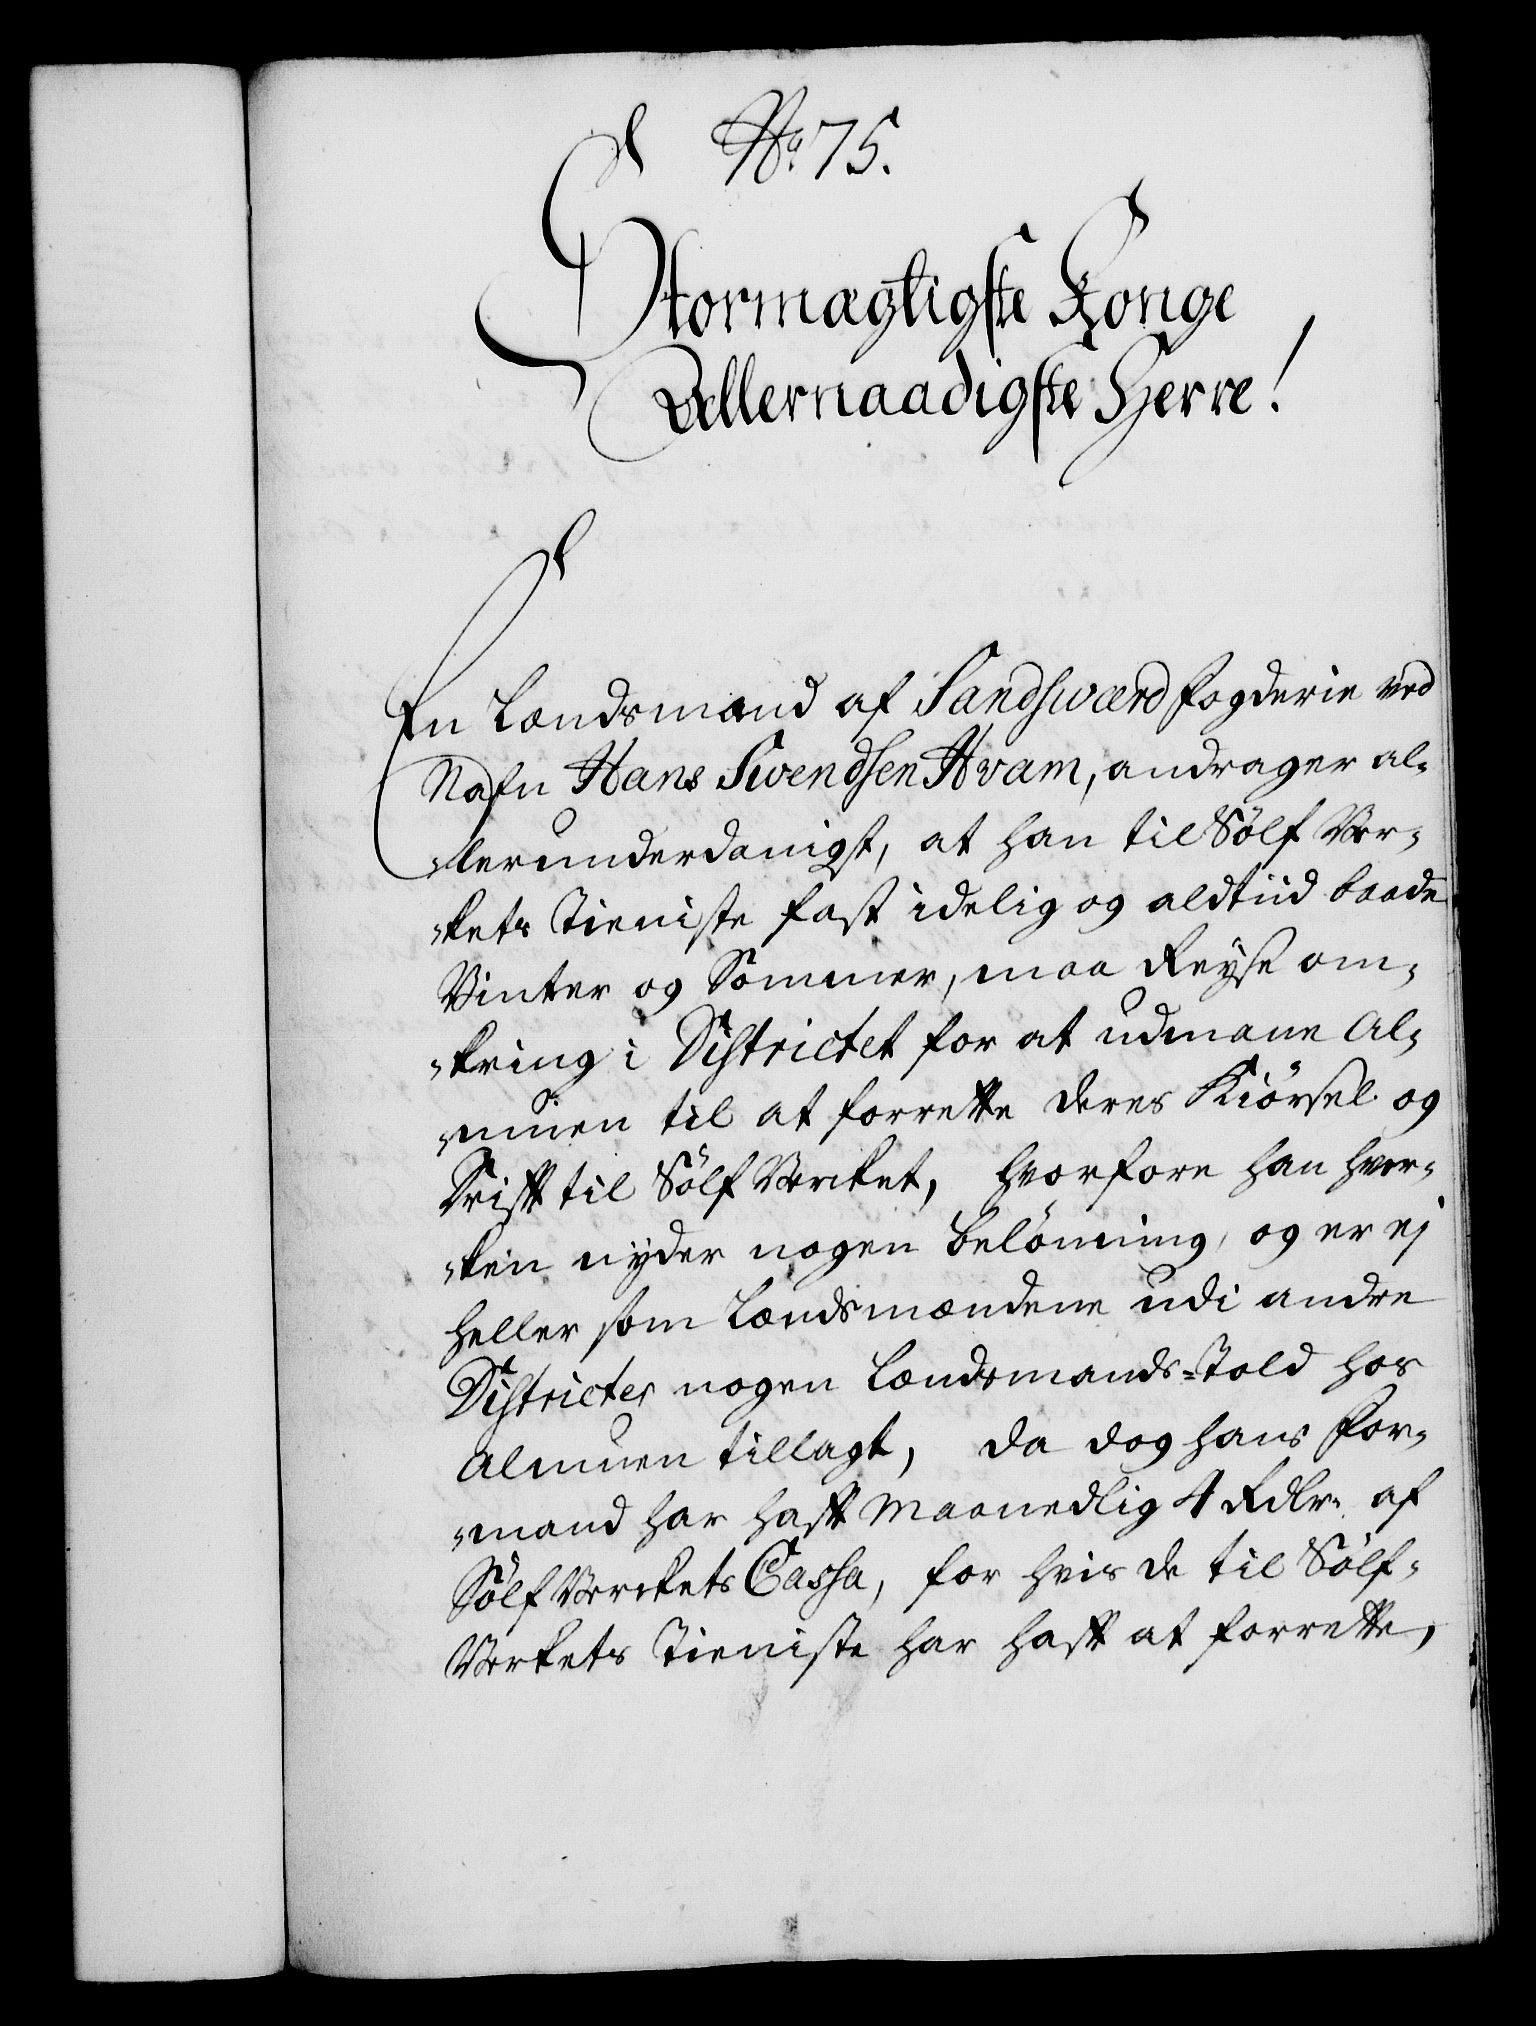 No. 75.
Stormægtigste Konge
Allernaadigste Herre!
En Lændsmand af Sandsværd fogderie ved
Nafn Hans Svendsen Hvam, andrager al-
lerunderdanigst, at han til Sølf Ver-
kets Tieniste fast idelig og aldtiid baade
Vinter og Sommer, maa Reyse om-
kring i Districtet for at udmane Al-
muen til at forrette deres Kiörsel og
Drift til Sölf Verket, hvorfore han hver-
ken nyder nogen belönning, og er ej
heller som Lændsmændene udi andre
Districter nogen Lændsmands-Told hos
Almuen tillagt, da dog hans For-
mand har hafft Maanedlig 4 Rdlr. af
Sölf Verkets Cassa, for hvis de til Sölf-
Verkets Tieniste har hafft at forrette,